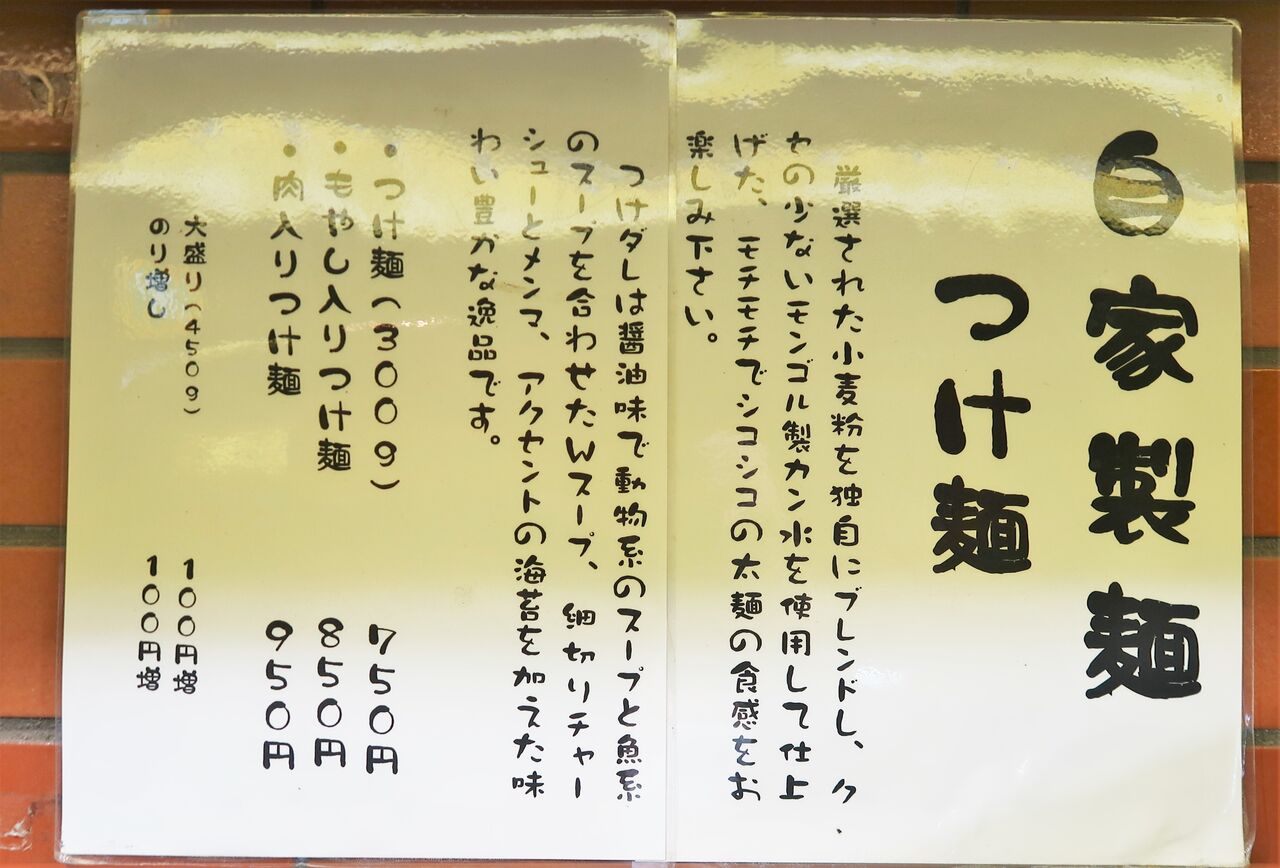 自家製麺
つけ麺
厳選された小麦粉を独自にブレンドし、ク
セの少ないモンゴル製カン水を使用して仕上
げた、モチモチでシコシコの太麺の食感をお
楽しみ下さい。
つけダレは醤油味で動物系のスープと魚系
のスープを合わせたWスープ、細切りチャー
シューとメンマ、アクセントの海苔を加えた味
わい豊かな逸品です。
・つけ麺(300g) 750円
・もやし入りつけ麺 850円
・肉入りつけ麺 950円
大盛り(450g) 100円増
のり増し 100円増